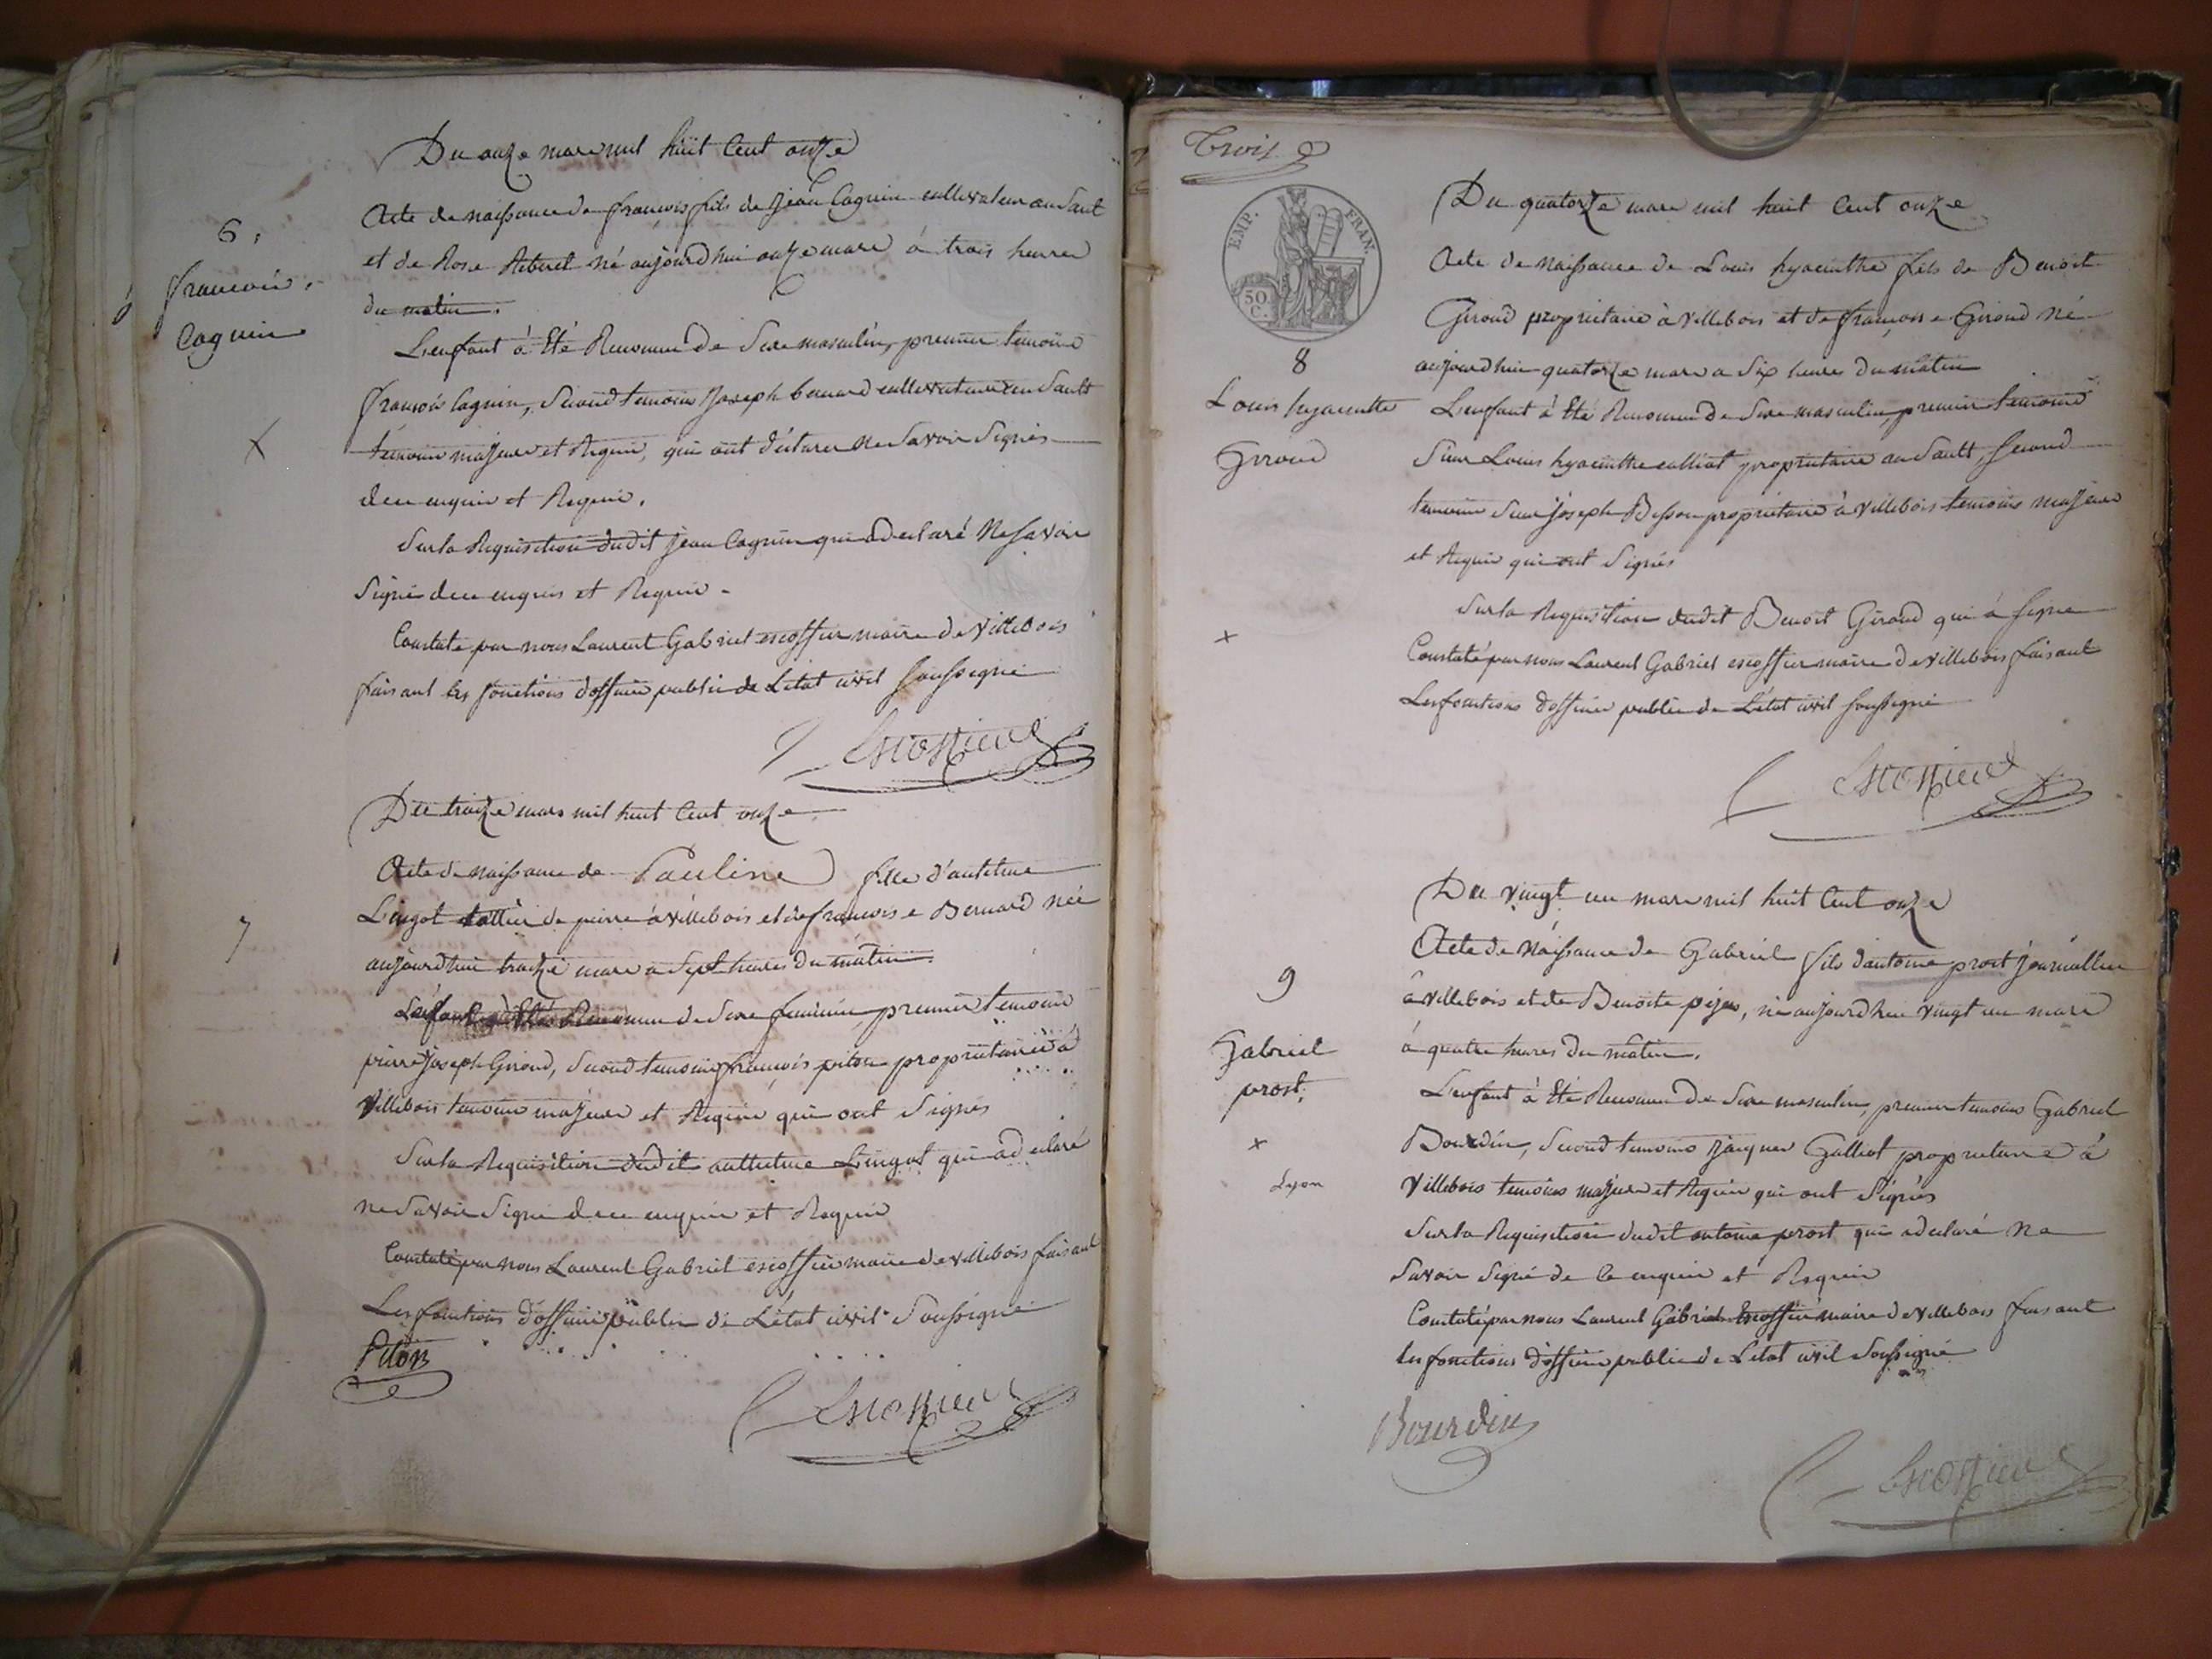 Du onze mars mil huit Cent onze
6.
françois
Caguin
X
Acte de naissance de françois fils de Jean Caguin cultivateur au Sault
et de Rose né aujourd'hui onze mars à trois heures
du matin.
L'enfant à Eté Reconnu de Sexe masculin, premier temoins
françois Caguin, Second temoins Joseph bernard cultivateurs au Sault
temoins majeurs et Requis, qui ont déclarés ne Savoir Signés
de ce enquis et Requis.
Sur la Requisition dudit Jean Caguin qui a declaré Ne Savoir
Signé de ce enquis et Requis -
Constaté par nous Laurent Gabriel escoffier maire de Villebois
faisant les fonctions d'officier public de L'etat civil Soussigné
Escoffier
Du traize mars mil huit Cent onze
7
Acte de naissance de Pauline fille d'antelme
Lingot tallieur de pierre à villebois et de françoise Bernard née
aujourd'hui traize mars a Sept heures du matin.
L'enfant à Eté Reconnu de Sexe feminin, premier temoins
pierre Joseph Giroud, Second temoins françois piton proprietaires à
Villebois temoins majeurs et Requis qui ont Signés
Sur la Requisition dudit anthelme Lingot qui a declaré
ne Savoir Signé de ce enquis et Requis
Constaté par nous Laurent Gabriel escoffier maire de villebois faisant
Les fonctions d'officier public de L'état civil Soussigné
Piton
Escoffier
Trois
EMP. FRAN.
50 C.
Du quatorze mars mil huit Cent onze
8
Louis hyacinthe
Giroud
x
Acte de Naissance de Louis hyacinthe fils de Benoit
Giroud proprietaire à Villebois et de françoise Giroud né
aujourd'hui quatorze mars a Six heures du matin
L'enfant à Eté Reconnu de Sexe masculin, premier temoins
Sieur Louis hyacinthe calliot proprietaire au Sault, Second
temoins Sieur joseph Besson proprietaire à Villebois temoins majeurs
et Requis qui ont Signés
Sur la Requisition dudit Benoit Giroud qui à Signé
Constaté par nous Laurent Gabriel escoffier maire de villebois faisant
Les fonctions d'officier public de L'état civil Soussigné
Escoffier
Du vingt un mars mil huit Cent onze
9
Gabriel
prost.
x
Lyon
Acte de Naissance de Gabriel fils d'antoine prost journallier
à Villebois et de Benoite, né aujourd'hui vingt un mars
à quatre heures du matin.
L'enfant à Eté Reconnu de Sexe masculin, premier temoins Gabriel
Bourdin, Second temoins Jacques Galliot proprietaires à
Villebois temoins majeurs et Requis qui ont Signés
Sur la Requisition dudit antoine prost qui a declaré Ne
Savoir Signé de ce enquis et Requis
Constaté par nous Laurent Gabriel Escoffier maire de Villebois faisant
les fonctions d'officier public de L'etat civil Soussigné
Bourdin
Escoffier